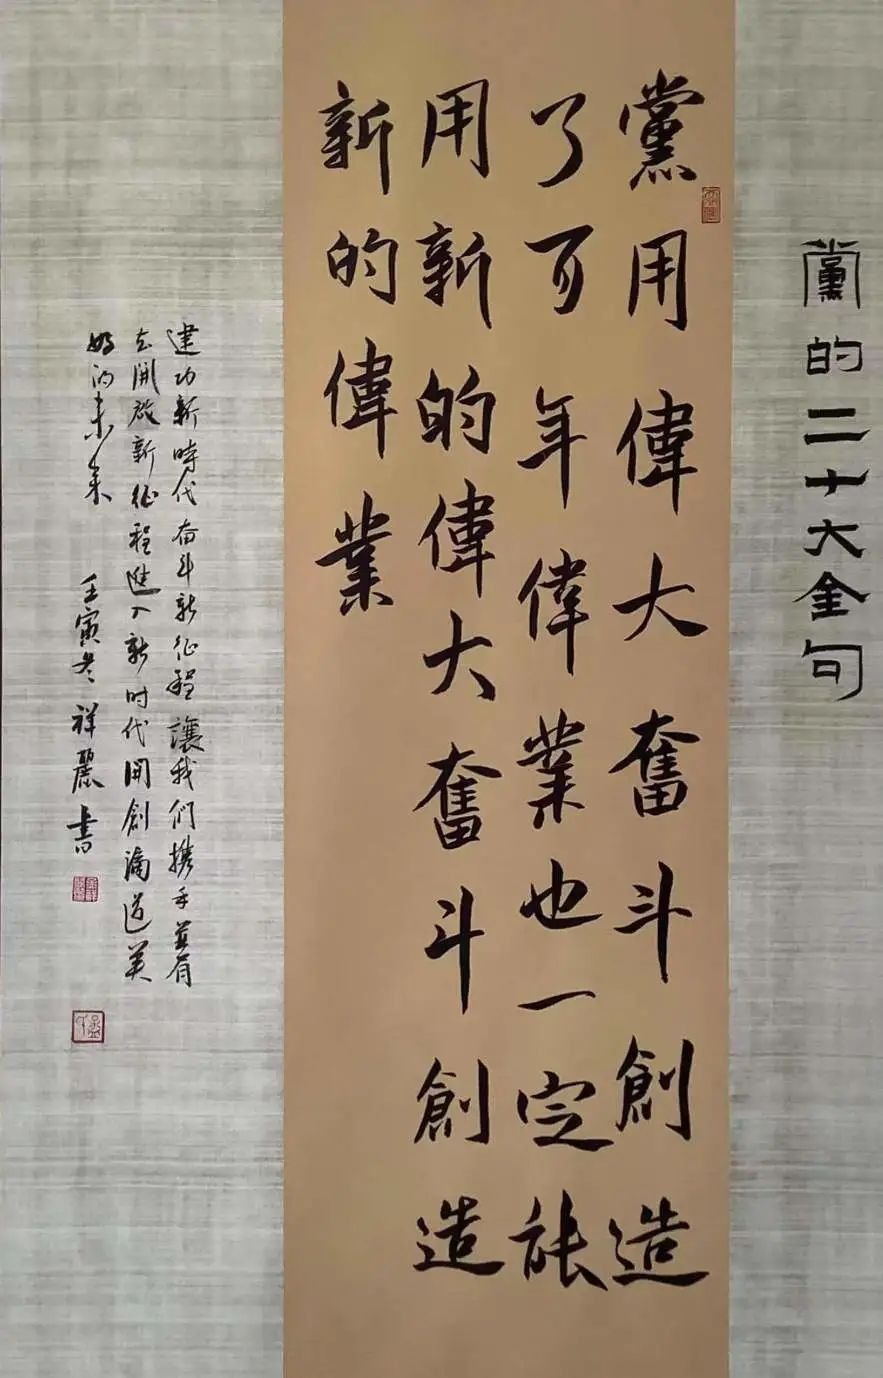 黨的二十大金句
黨用偉大奮斗創造
了百年偉業也一定能
用新的偉大奮斗創造
新的偉業
建功新時代奋斗新征程讓我們携手並肩
去開啟新征程進入新时代開創滿道美
好的未来
壬寅冬祥麗書